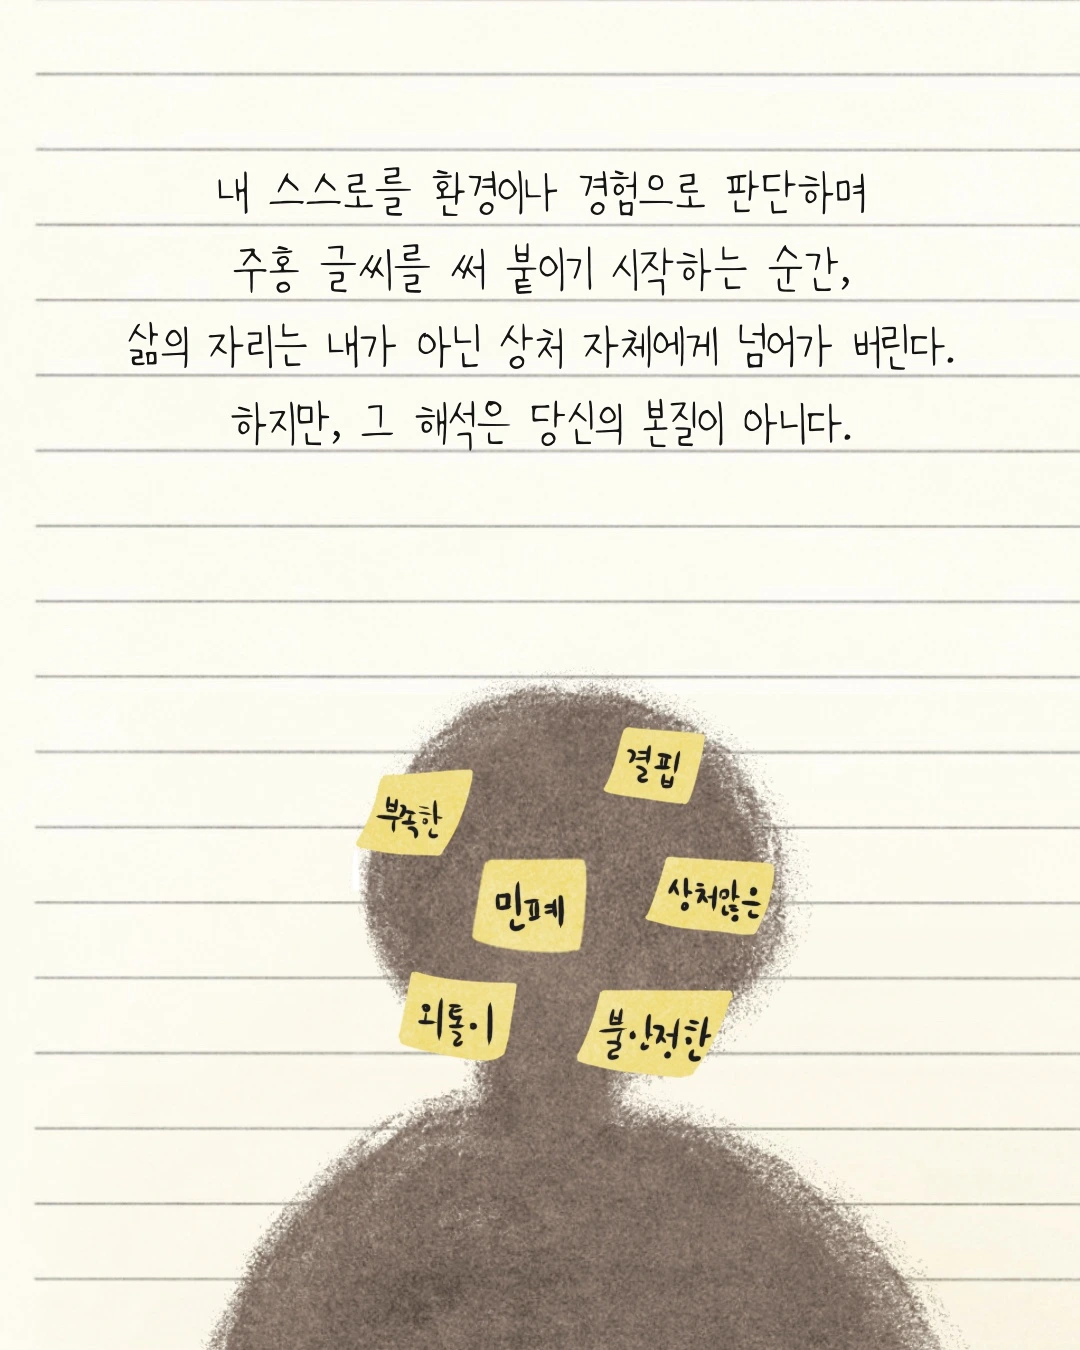 내 스스로를 환경이나 경험으로 판단하며
주홍 글씨를 써 붙이기 시작하는 순간,
삶의 자리는 내가 아닌 상처 자체에게 넘어가 버린다.
하지만, 그 해석은 당신의 본질이 아니다.
결핍
부족한
민폐
상처많은
외톨이
불안정한